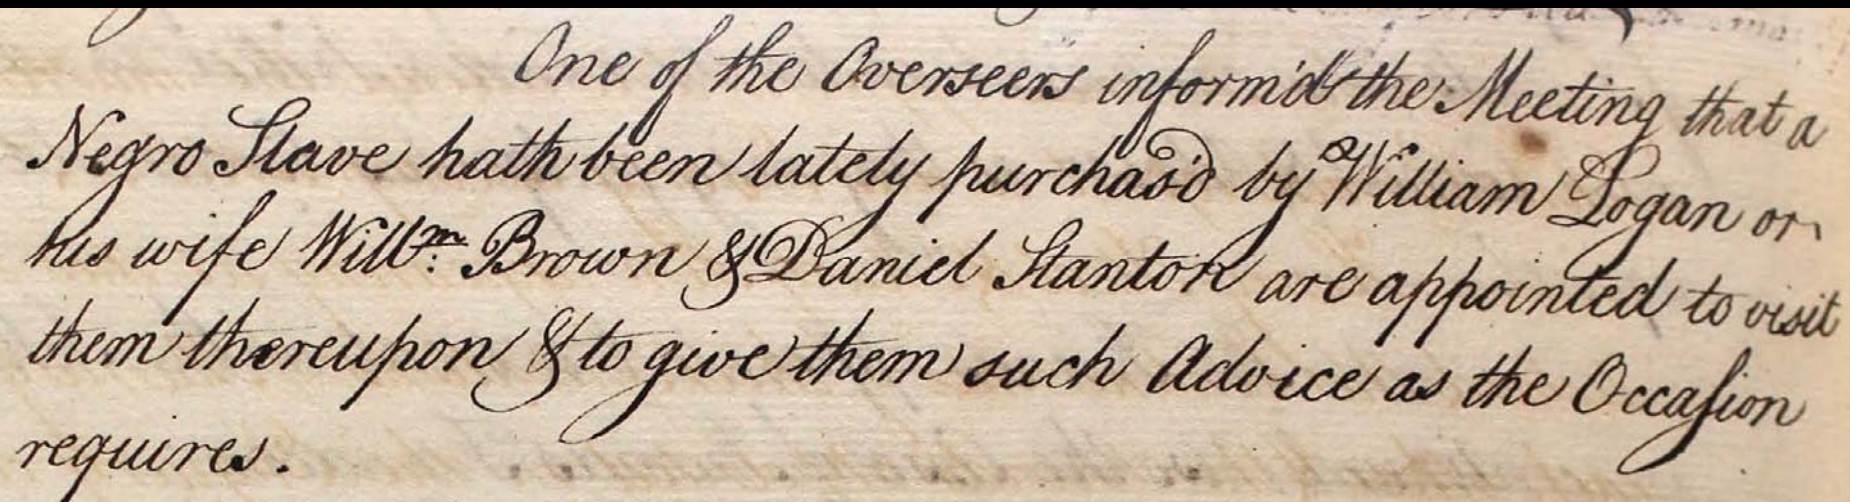 One of the Overseers inform'd the Meeting that a
Negro Slave hath been lately purchas'd by William Logan or
his wife Willm. Brown & Daniel Stanton are appointed to visit
them thereupon & to give them such Advice as the Occasion
requires.